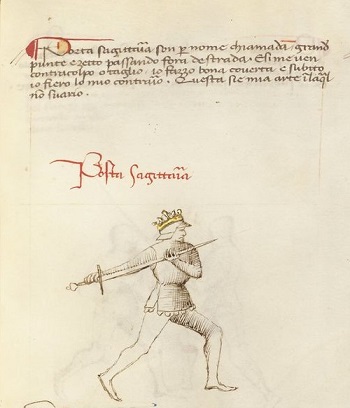 Posta sagittaria son per nome chiamada, grand
punte e zetto passando fora de strada. E si me ven
contra colpo o taglio, io fazzo bona coverta e subito
io fiero lo mio contrario. Questa sie mia arte in la q̃l
nõ svario.
Posta Sagittaria